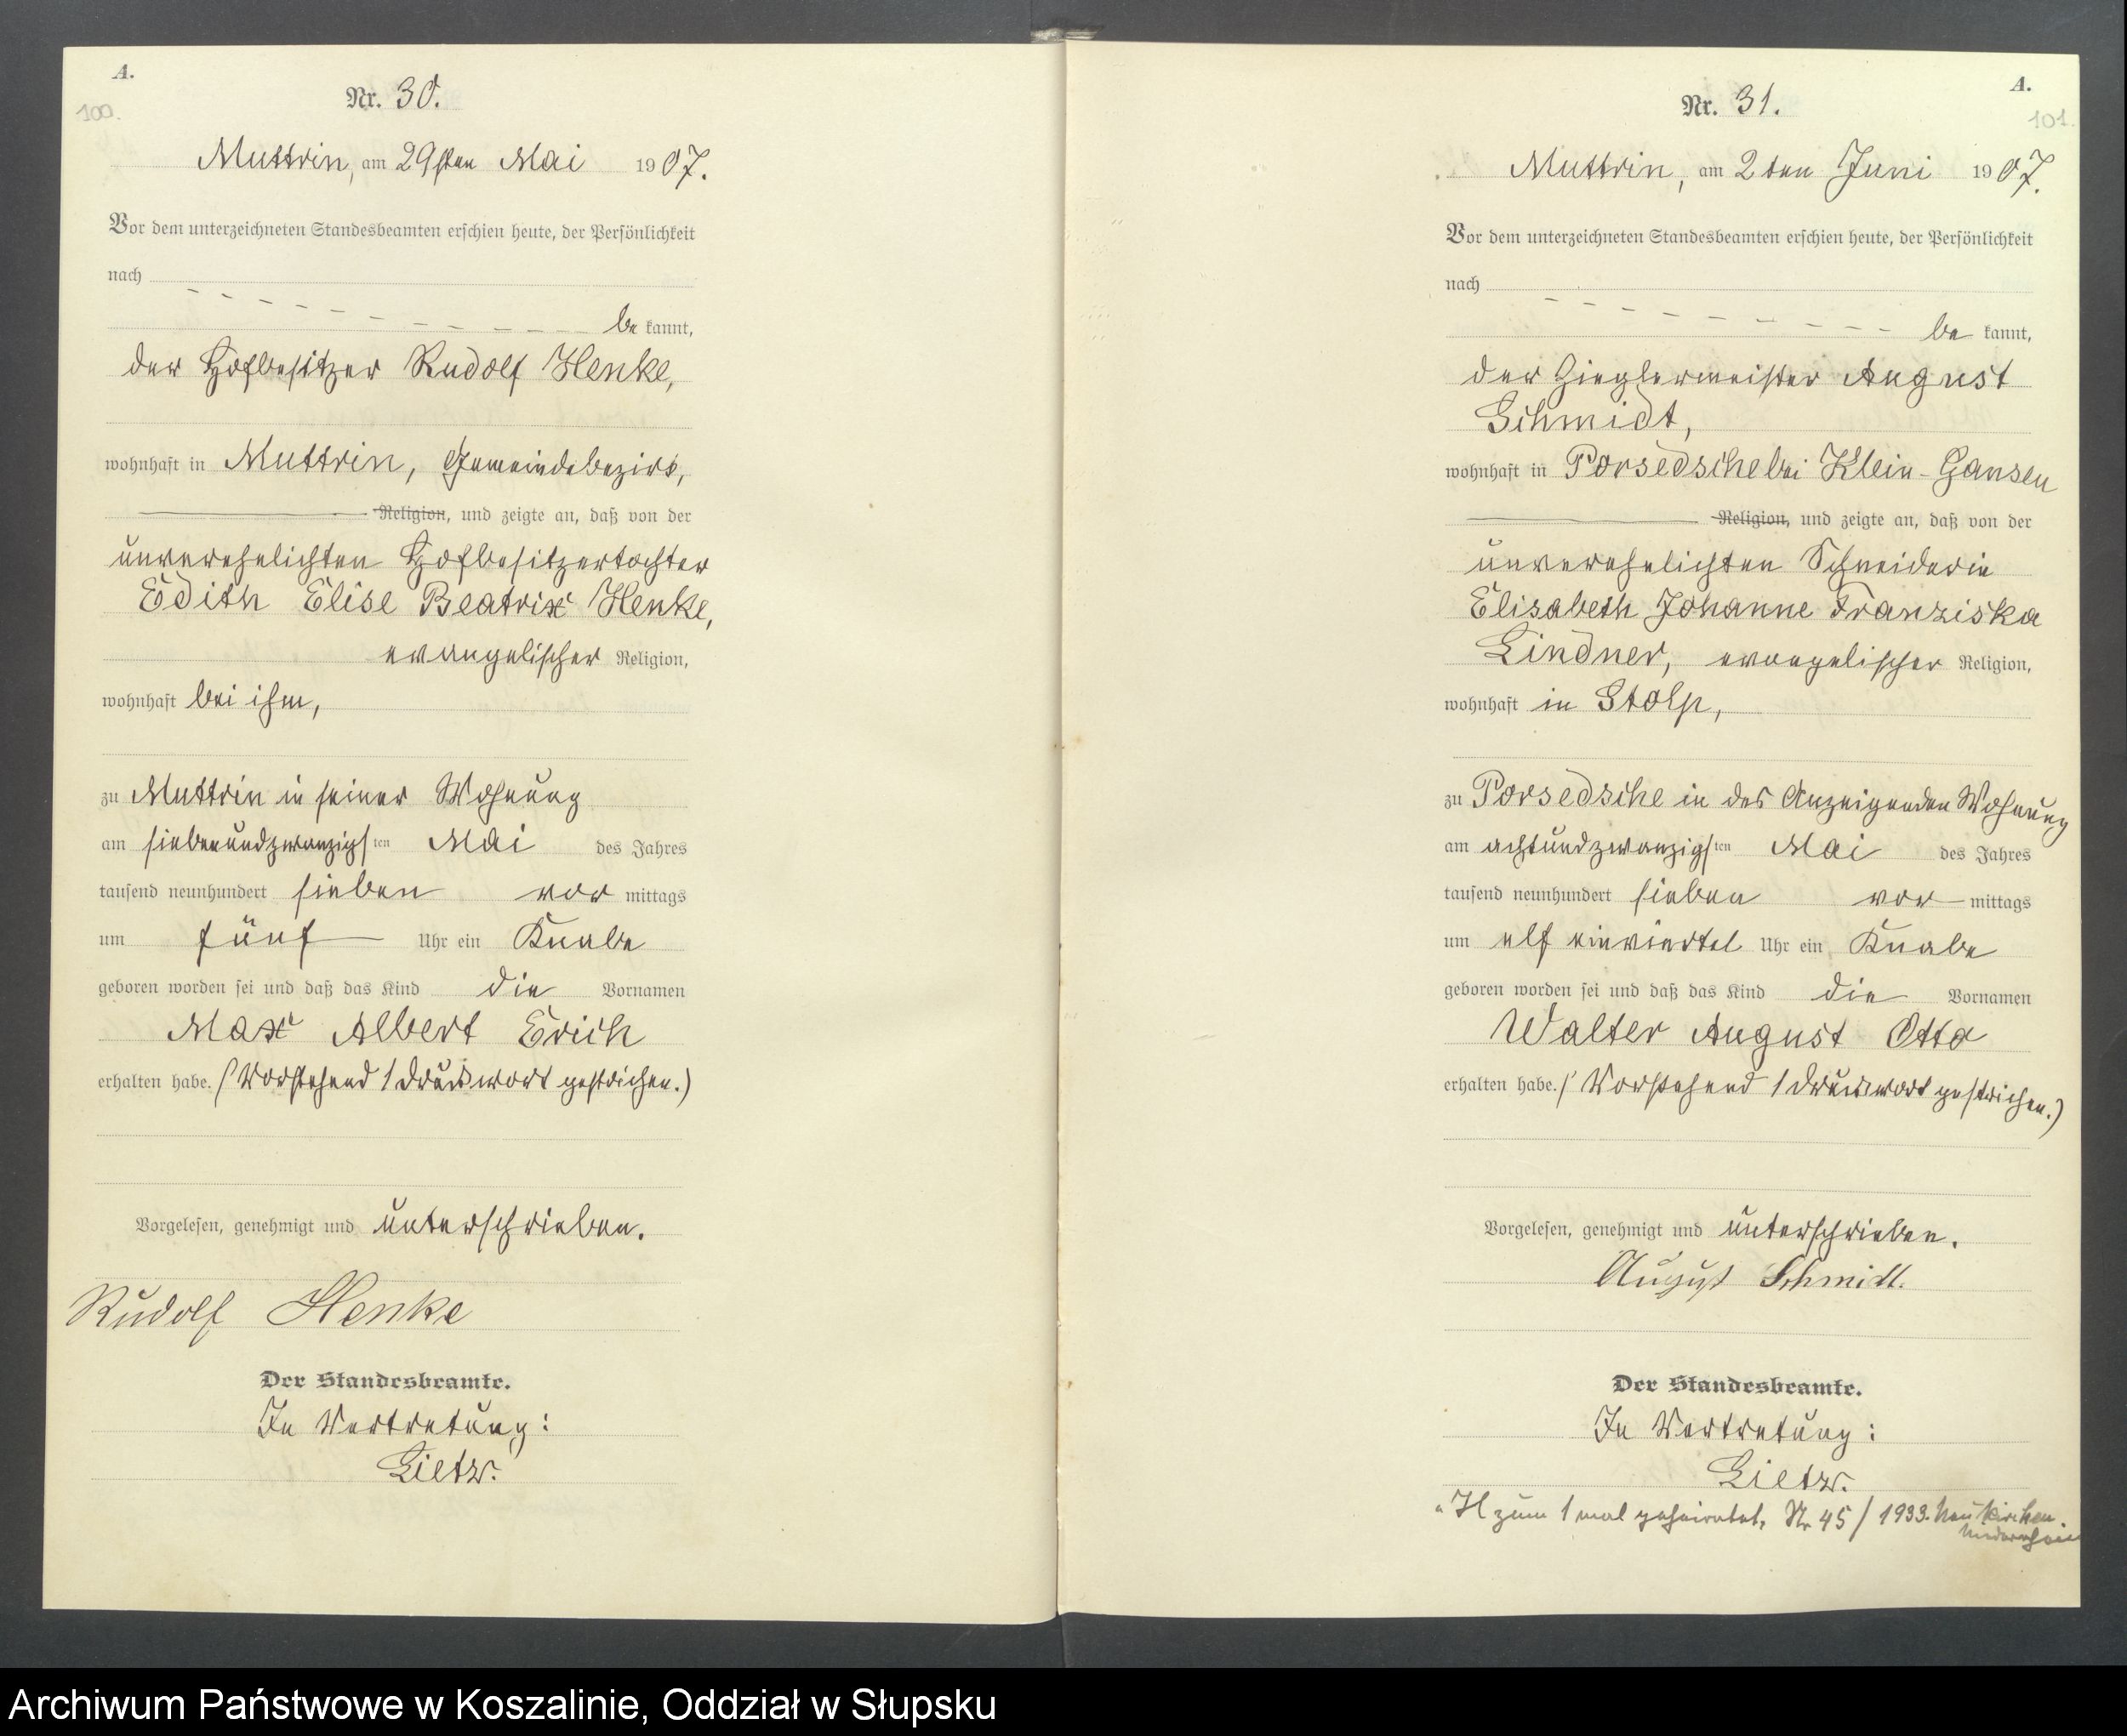 A.
100.
Nr. 30.
Muttrin, am 29sten Mai 1907.
Vor dem unterzeichneten Standesbeamten erschien heute, der Persönlichkeit
nach
be kannt,
der Hofbesitzer Rudolf Henke,
wohnhaft in Muttrin, Gemeindebezirk,
Religion, und zeigte an, daß von der
unverehelichten Hofbesitzertochter
Edith Elise Beatrix Henke,
evangelischer Religion,
wohnhaft bei ihm,
zu Muttrin in seiner Wohnung
am siebenundzwanzigsten Mai des Jahres
tausend neunhundert sieben vor mittags
um fünf Uhr ein Knabe
geboren worden sei und daß das Kind die Vornamen
Max Albert Erich
erhalten habe. (Vorstehend 1 Druckwort gestrichen.)
Vorgelesen, genehmigt und unterschrieben.
Rudolf Henke
Der Standesbeamte.
In Vertretung:
Lietz.
A.
101.
Nr. 31.
Muttrin, am 2ten Juni 1907.
Vor dem unterzeichneten Standesbeamten erschien heute, der Persönlichkeit
nach
be kannt,
der Zieglermeister August
Schmidt,
wohnhaft in Porsedsche bei Klein-Gansen
Religion, und zeigte an, daß von der
unverehelichten Schneiderin
Elisabeth Johanne Franziska
Lindner, evangelischer Religion,
wohnhaft in Stolp,
zu Porsedsche in des Anzeigenden Wohnung
am achtundzwanzigsten Mai des Jahres
tausend neunhundert sieben vor mittags
um elf einviertel Uhr ein Knabe
geboren worden sei und daß das Kind die Vornamen
Walter August Otto
erhalten habe. (Vorstehend 1 Druckwort gestrichen.)
Vorgelesen, genehmigt und unterschrieben.
August Schmidt.
Der Standesbeamte.
In Vertretung:
Lietz.
zum 1 mal geheiratet, Nr 45/1933. Neukirchen
Archiwum Państwowe w Koszalinie, Oddział w Słupsku